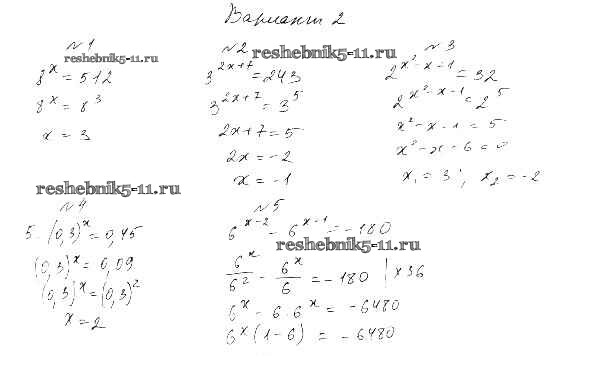 Вариант 2
№1
reshebnik5-11.ru
8^x = 512
8^x = 8^3
x = 3
№2
reshebnik5-11.ru
3^{2x+7} = 243
3^{2x+7} = 3^5
2x+7 = 5
2x = -2
x = -1
№3
2^{x^2-x-1} = 32
2^{x^2-x-1} = 2^5
x^2-x-1 = 5
x^2-x-6 = 0
x_1 = 3; x_2 = -2
reshebnik5-11.ru
№4
5·(0,3)^x = 0,45
(0,3)^x = 0,09
(0,3)^x = (0,3)^2
x = 2
№5
6^{x-2} - 6^{x-1} = -180
reshebnik5-11.ru
6^x/6^2 - 6^x/6 = -180 | ×36
6^x - 6·6^x = -6480
6^x(1-6) = -6480